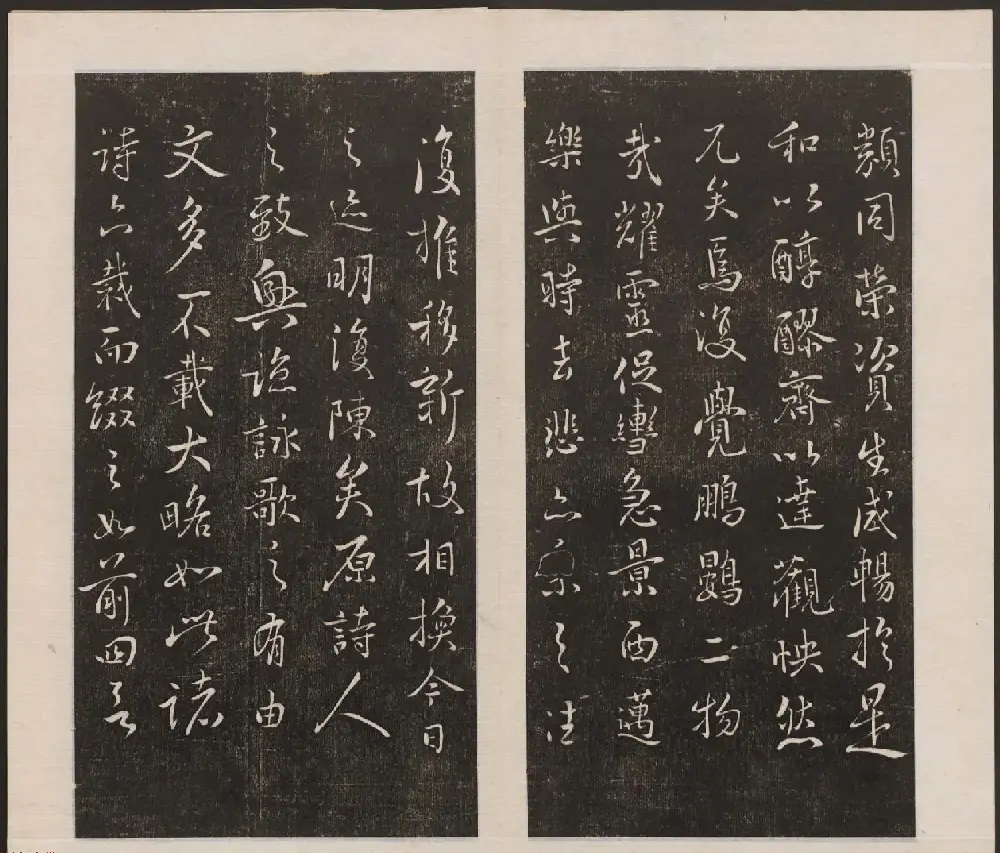 類同榮資生咸暢於是
和以醇醪齊以達觀怏然
兀矣焉復覺鵬鷃二物
哉耀靈促轡急景西邁
樂與時去悲亦系之往
復推移新故相換今日
之迹明復陳矣原詩人
之致興諒詠歌之有由
文多不載大略如此諸
詩亦裁而綴之如前四言